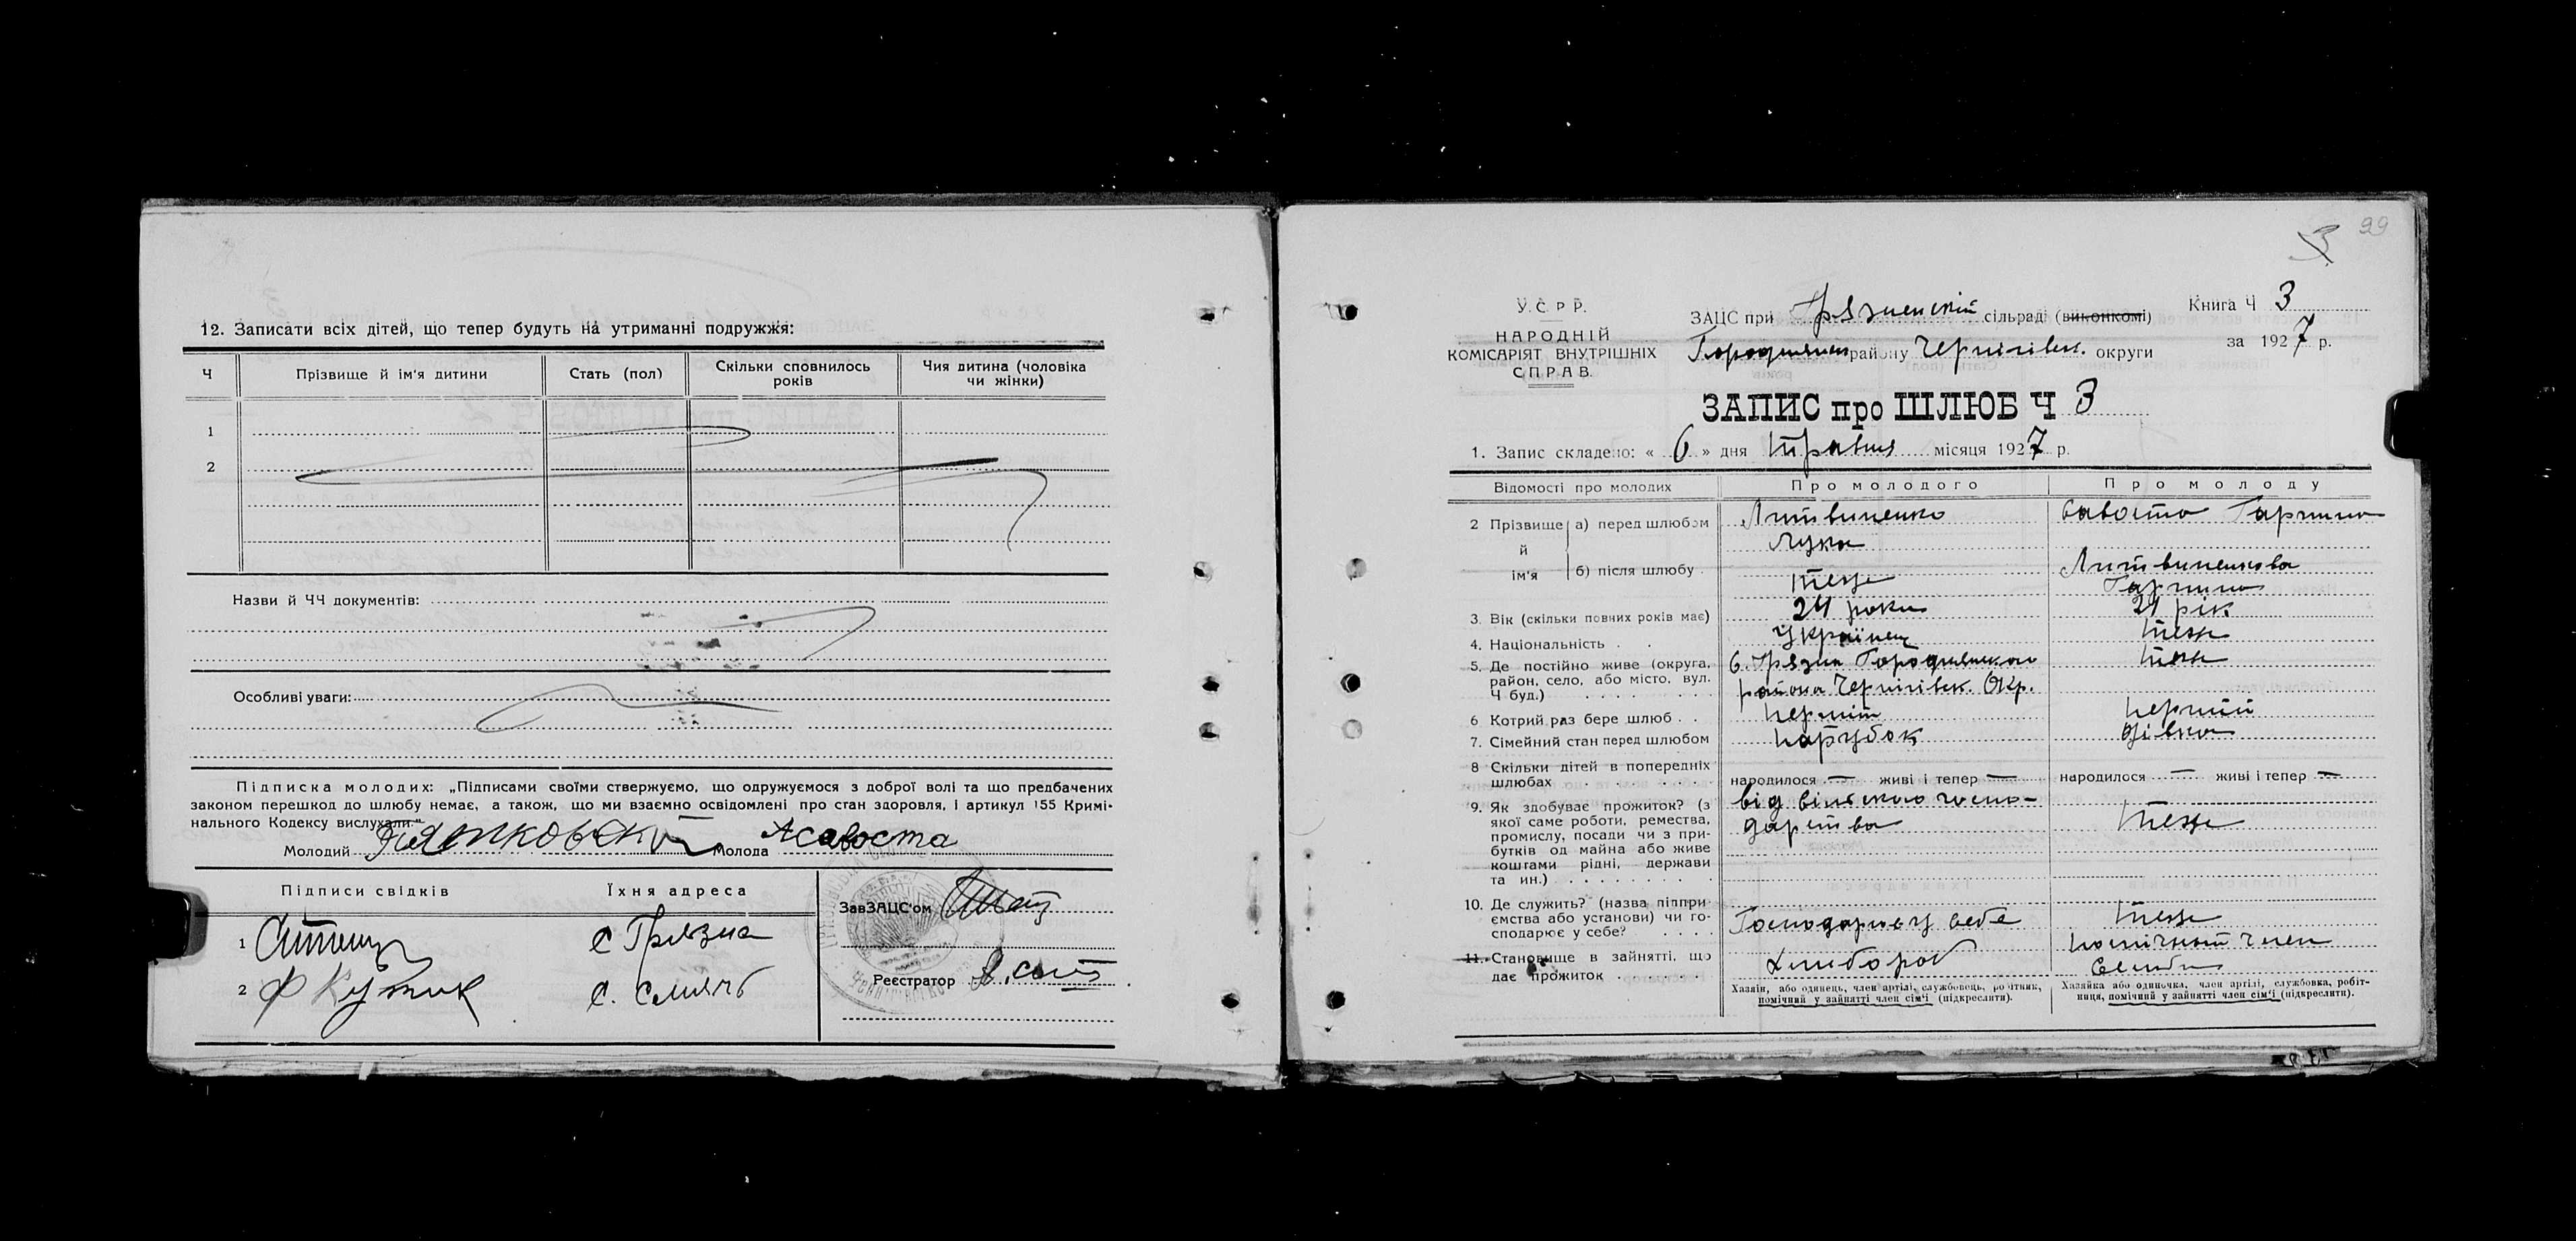 12. Записати всіх дітей, що тепер будуть на утриманні подружжя:
Ч
Прізвище й ім'я дитини
Стать (пол)
Скільки сповнилось років
Чия дитина (чоловіка чи жінки)
1
2
Назви й ЧЧ документів:
Особливі уваги:
Підписка молодих: „Підписами своїми ствержуємо, що одружуємося з доброї волі та що предбачених
законом перешкод до шлюбу немає, а також, що ми взаємно освідомлені про стан здоровля, і артикул 155 Кримі-
нального Кодексу вислухали."
Молодий
Молода А савоста
Підписи свідків
Їхня адреса
1 с Грязна
2 Ф Кутик с.
ЗавЗАЦС'ом
Реєстратор
99
У.С.Р.Р.
НАРОДНІЙ
КОМІСАРІЯТ ВНУТРІШНІХ
СПРАВ.
ЗАЦС при Грязненскій сільраді (виконкомі)
району Чернігівск. округи
Книга Ч 3
за 1927 р.
ЗАПИС про ШЛЮБ Ч 3
1. Запис складено: « 6 » дня Травня місяця 1927 р.
Відомості про молодих
Про молодого
Про молоду
2 Прізвище й ім'я
а) перед шлюбом
Литвиненко
Лука
Савоста Гарпина
б) після шлюбу
теж
Литвиненкова
Гарпина
3. Вік (скільки повних років має)
24 роки
21 рік
4. Національність
Українец
теж
5. Де постійно живе (округа,
район, село, або місто, вул.
Ч буд.)
с. Грязна Городнянського
района Чернігівск. Окр.
теж
6 Котрий раз бере шлюб
перший
7. Сімейний стан перед шлюбом
парубок
дівка
8 Скільки дітей в попередніх
шлюбах
народилося — живі і тепер —
народилося — живі і тепер —
9. Як здобуває прожиток? (з
якої саме роботи, ремества,
промислу, посади чи з при-
бутків од майна або живе
коштами рідні, держави
та ин.)
від сільского госпо-
дарства
теж
10. Де служить? (назва піпри
ємства або установи) чи го-
сподарює у себе?
Господарює у себе
теж
11. Становище в зайнятті, що
дає прожиток
хлибороб
член
Хазяїн, або одинець, член артілі, службовець, робітник,
помічний у зайнятті член сім'ї (підкреслити).
Хазяйка або одиночка, член артілі, службовка, робіт-
ниця, помічний у зайнятті член сім'ї (підкреслити).